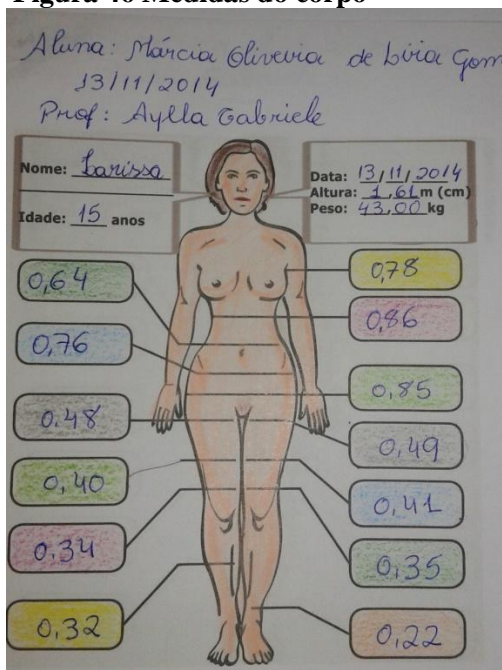 Figura 46 Medidas do corpo
Aluna: Márcia Oliveira de Lima Gom
13/11/2014
Prof: Aylla Gabriele
Nome: Larissa
Idade: 15 anos
Data: 13/11/2014
Altura: 1,61 m (cm)
Peso: 43,00 kg
0,64
0,78
0,86
0,76
0,85
0.48
0,49
0,40
0,41
0.34
0,35
0,32
0,22